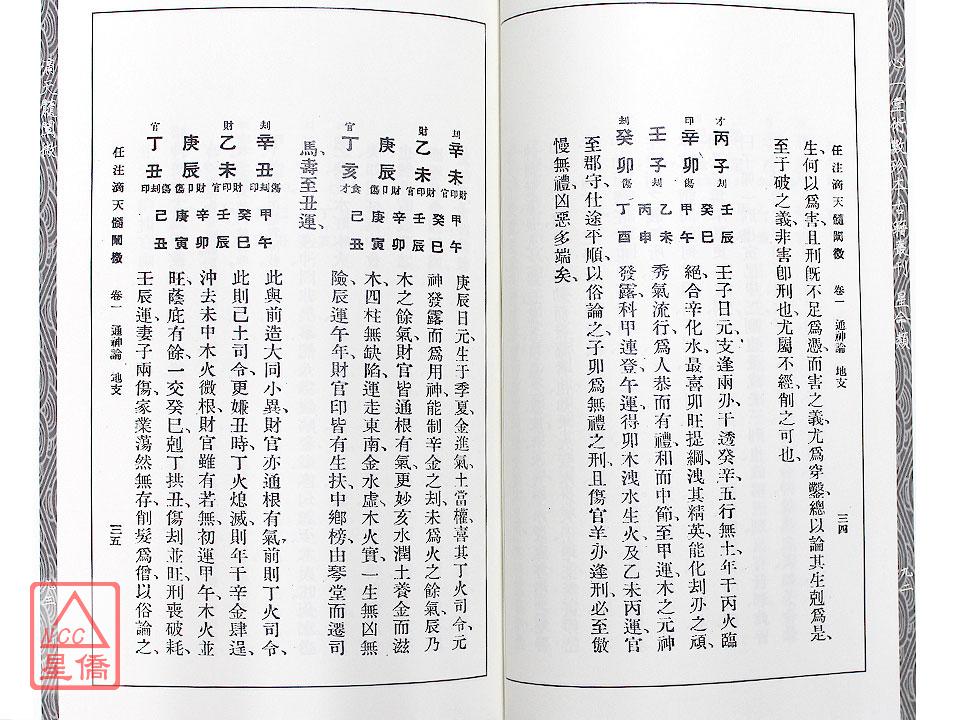 生、何以爲害、且刑旣不足爲憑、而害之義、尤爲穿鑿、總以論其生剋爲是、
至于破之義、非害卽刑也、尤屬不經、削之可也、
任注滴天髓闡微 卷一 通神論 地支 三四
才丙子刦 壬辰
印辛卯傷 癸巳 甲午
壬子刦 乙未 丙申
刦癸卯傷 丁酉
壬子日元、支逢兩刃、干透癸辛、五行無土、年干丙火臨
絕、合辛化水、最喜卯旺提綱、洩其精英、能化刦刃之頑、
秀氣流行、爲人恭而有禮、和而中節、至甲運木之元神
發露、科甲連登、午運得卯木洩水生火、及乙未丙運、官
至郡守、仕途平順、以俗論之、子卯爲無禮之刑、且傷官羊刃逢刑、必至傲
慢無禮、凶惡多端矣、
刦辛未財印官 甲午
財乙未財印官 癸巳 壬辰
庚辰財印傷 辛卯 庚寅
官丁亥食才 己丑
庚辰日元、生于季夏、金進氣、土當權、喜其丁火司令、元
神發露而爲用神、能制辛金之刦、未爲火之餘氣、辰乃
木之餘氣、財官皆通根有氣、更妙亥水潤土養金而滋
木、四柱無缺陷、運走東南、金水虛、木火實、一生無凶無
險、辰運午年、財官印皆有生扶、中鄕榜、由琴堂而遷司
馬、壽至丑運、
刦辛丑傷刦印 甲午
財乙未財印官 癸巳 壬辰
庚辰財印傷 辛卯 庚寅
官丁丑傷刦印 己丑
此與前造大同小異、財官亦通根有氣、前則丁火司令、
此則己土司令、更嫌丑時、丁火熄滅、則年干辛金肆逞、
沖去未中木火微根、財官雖有若無、初運甲午、木火並
旺、蔭庇有餘、一交癸巳、剋丁拱丑、傷刦並旺、刑喪破耗、
壬辰運、妻子兩傷、家業蕩然無存、削髮爲僧、以俗論之、
任注滴天髓闡微 卷一 通神論 地支 三五
NCC
星僑